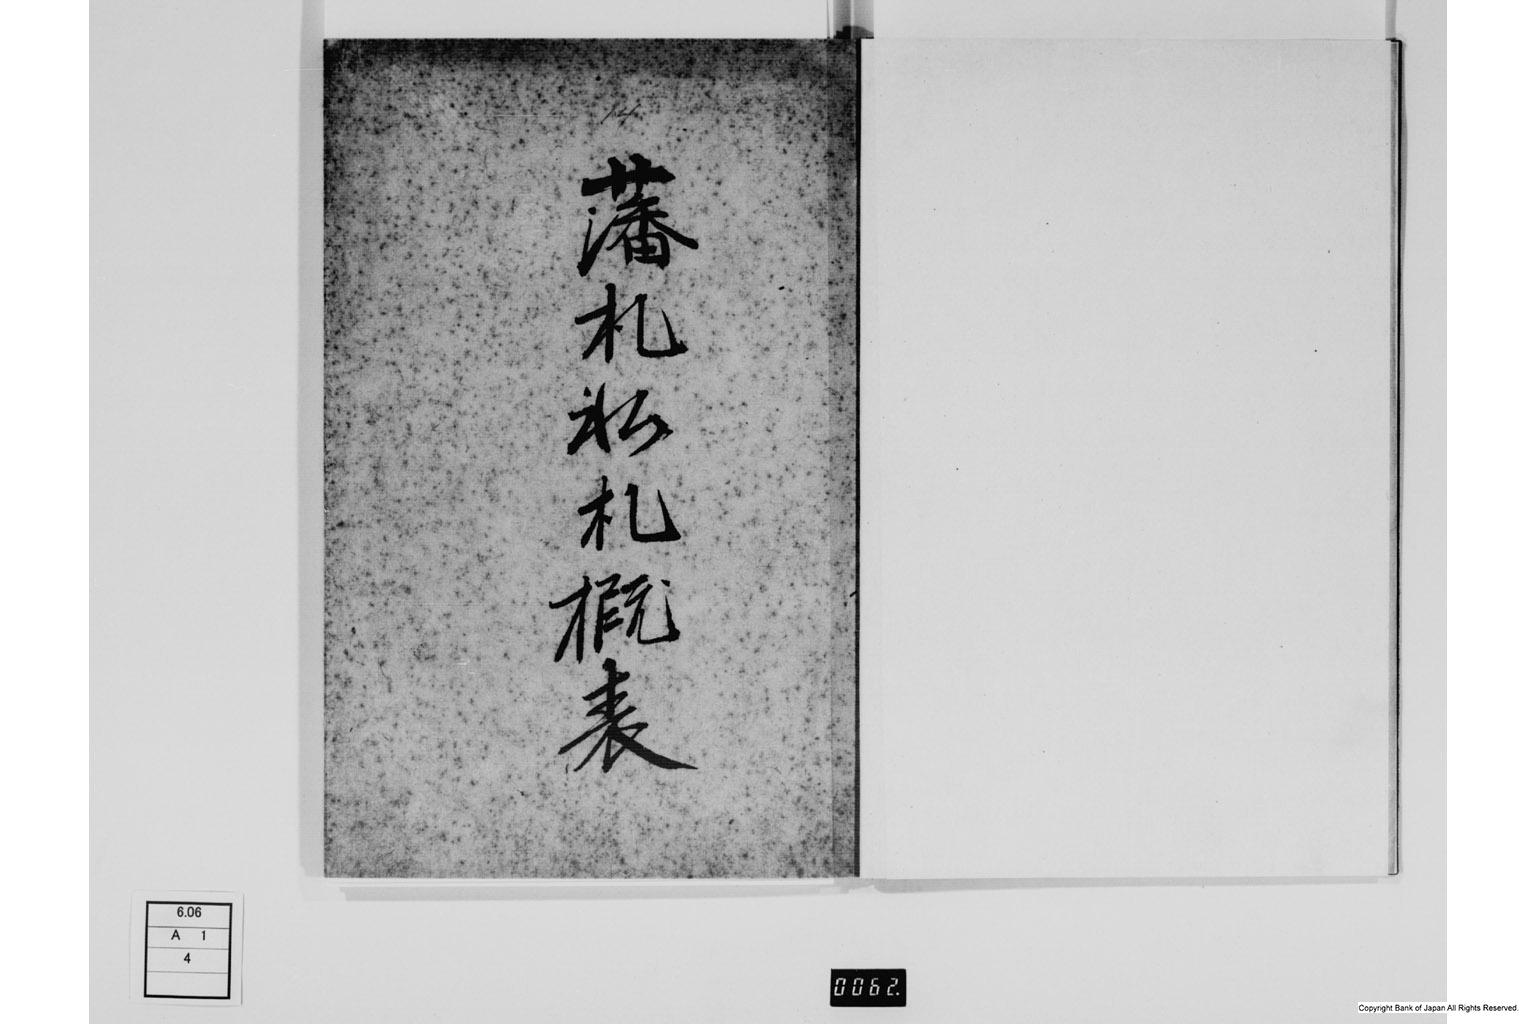 14
藩札私札概表
6.06
A 1
4
0062.
Copyright Bank of Japan All Rights Reserved.